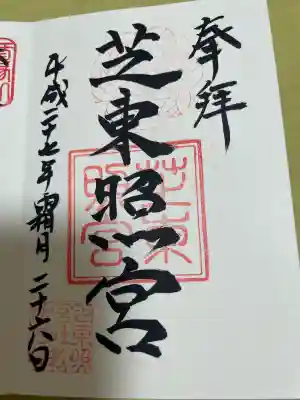 奉拝
芝東照宮
芝東照宮
平成二十七年霜月二十六日